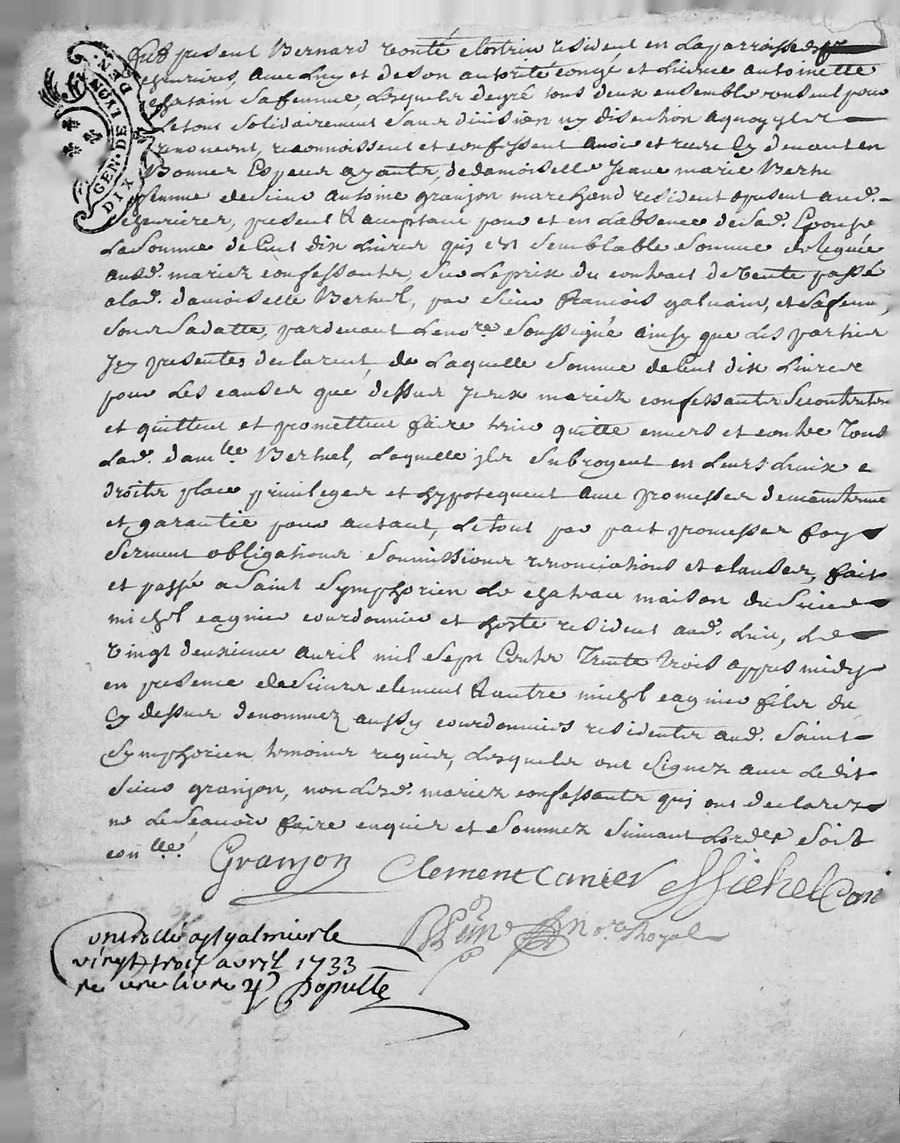 GEN. DE LYON
DIX DEN.
fut present Bernard et residant en la parroisse de
avec luy et de son autorité congé et licence antoinette
sa femme, lesquels de gré tous deux ensemble pour
le tout solidairement sans division ny discution a quoy ils
renoncent, reconnoissent et confessent avoir et receu cy devant en
Bonnes Especes ayants, de damoiselle Jeane marie
femme de sieur antoine granjon marchand residant present aud.
present & acceptant pour et en l'absence de sad. Epouse
La somme de Cent dix Livres qui est semblable somme deleguée
ausd. mariez confessants, sur le prix du contract de vente passé
a lad. damoiselle par sieur francois galmain, et sa femme
sous sa datte, pardevant le no.re soussigné ainsy que les parties
Icy presentes declarent, de Laquelle somme de Cent dix Livres
pour les causes que dessus Iceux mariez confessants se contentent
et quittent et promettent faire tenir quitte envers et contre Tous
lad. dam.lle Laquelle ils subrogent en Leurs Lieux
droits place privileges et hypoteques avec promesses de maintenue
et garantie pour autant, Le tout par pact promesses foy
serment obligations soumissions renonciations et clauses, fait
et passé a Saint Symphorien Le chateau maison du sieur
michel cagnier courdonnier et hoste residant aud. Lieu, Le
Vingt deuxieme avril mil sept Cents Trente Trois appres midy
en presence de sieurs clement & autre michel cagnier fils du
cy dessus denommez aussy courdonniers residents aud. Saint
Symphorien temoins requis, Lesquels ont signez avec Ledit
sieur granjon, non Lesd. mariez confessants qui ont declarez
ne le scavoir faire enquis et sommez suivant Lord.ce soit
con.llé.
Granjon Clement Canier Michel Cani
no.re Royal
Controllé a st galmier le
vingt trois avril 1733
re une livre 4s